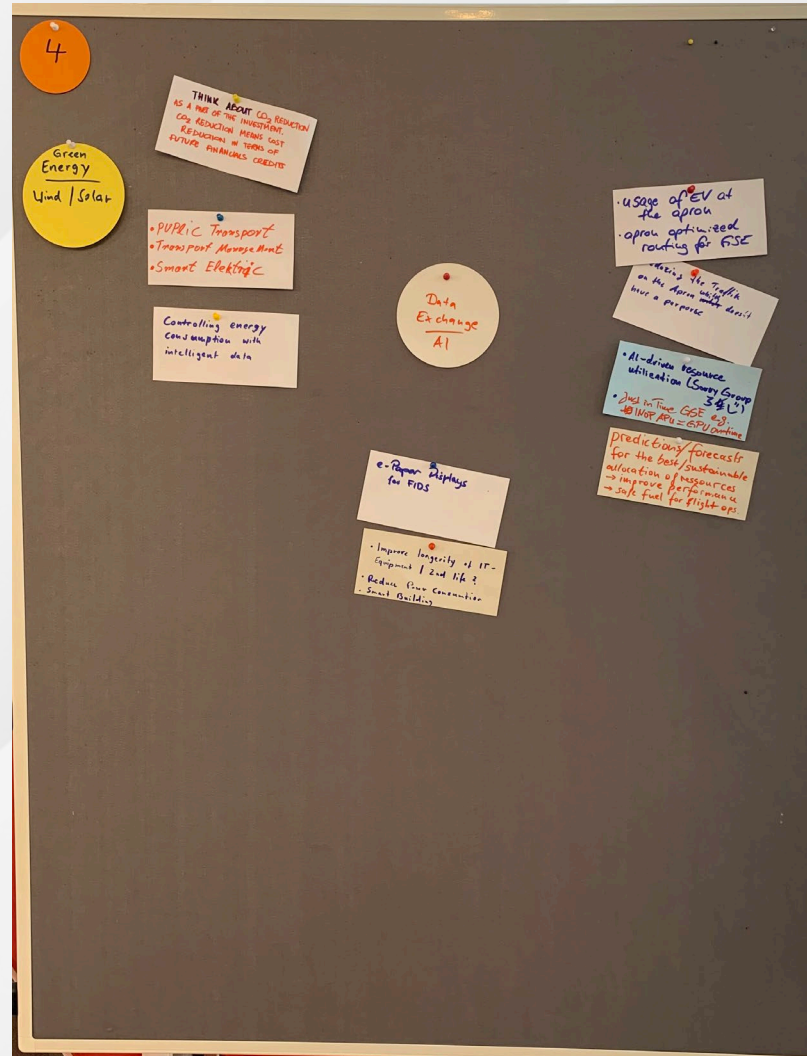 4
Green
Energy
Wind / Solar
THINK ABOUT CO₂ REDUCTION
AS A PART OF THE INVESTMENT.
CO₂ REDUCTION MEANS COST
REDUCTION IN TERMS OF
FUTURE FINANCIALS CREDITS
• PUPLIC Transport
• Transport Management
• Smart Elektric
Controlling energy
consumption with
intelligent data
Data
Exchange
AI
e-Paper Displays
for FIDS
• Improve longerity of IT-
Equipment / 2nd life ?
• Reduce Power Consumption
• Smart Building
• usage of EV at
the apron
• apron optimized
routing for GSE
the Traffik
on the Apron
have a purpose
• AI-driven resource
utilization (Sorry Group
3
• Just in Time GSE e.g.
INOP APU = GPU ontime
predictions/forecasts
for the best/sustainable
allocation of ressources
→ improve performance
→ safe fuel for flight ops.